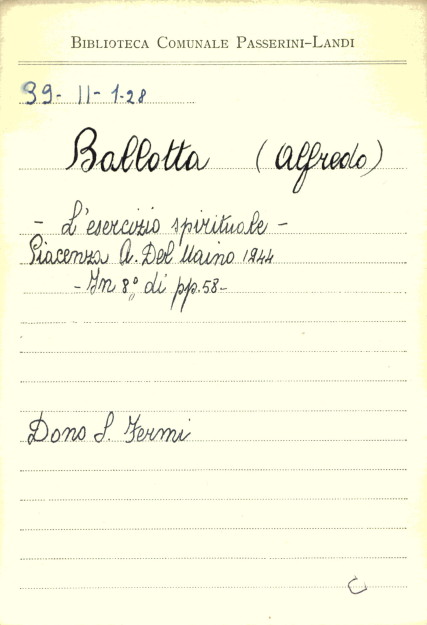 BIBLIOTECA COMUNALE PASSERINI-LANDI
39- II- 1-28
Ballotta (Alfredo)
- L'esercizio spirituale -
Piacenza A. Del Maino 1944
- In 8° di pp. 58-
Dono S. Fermi
C